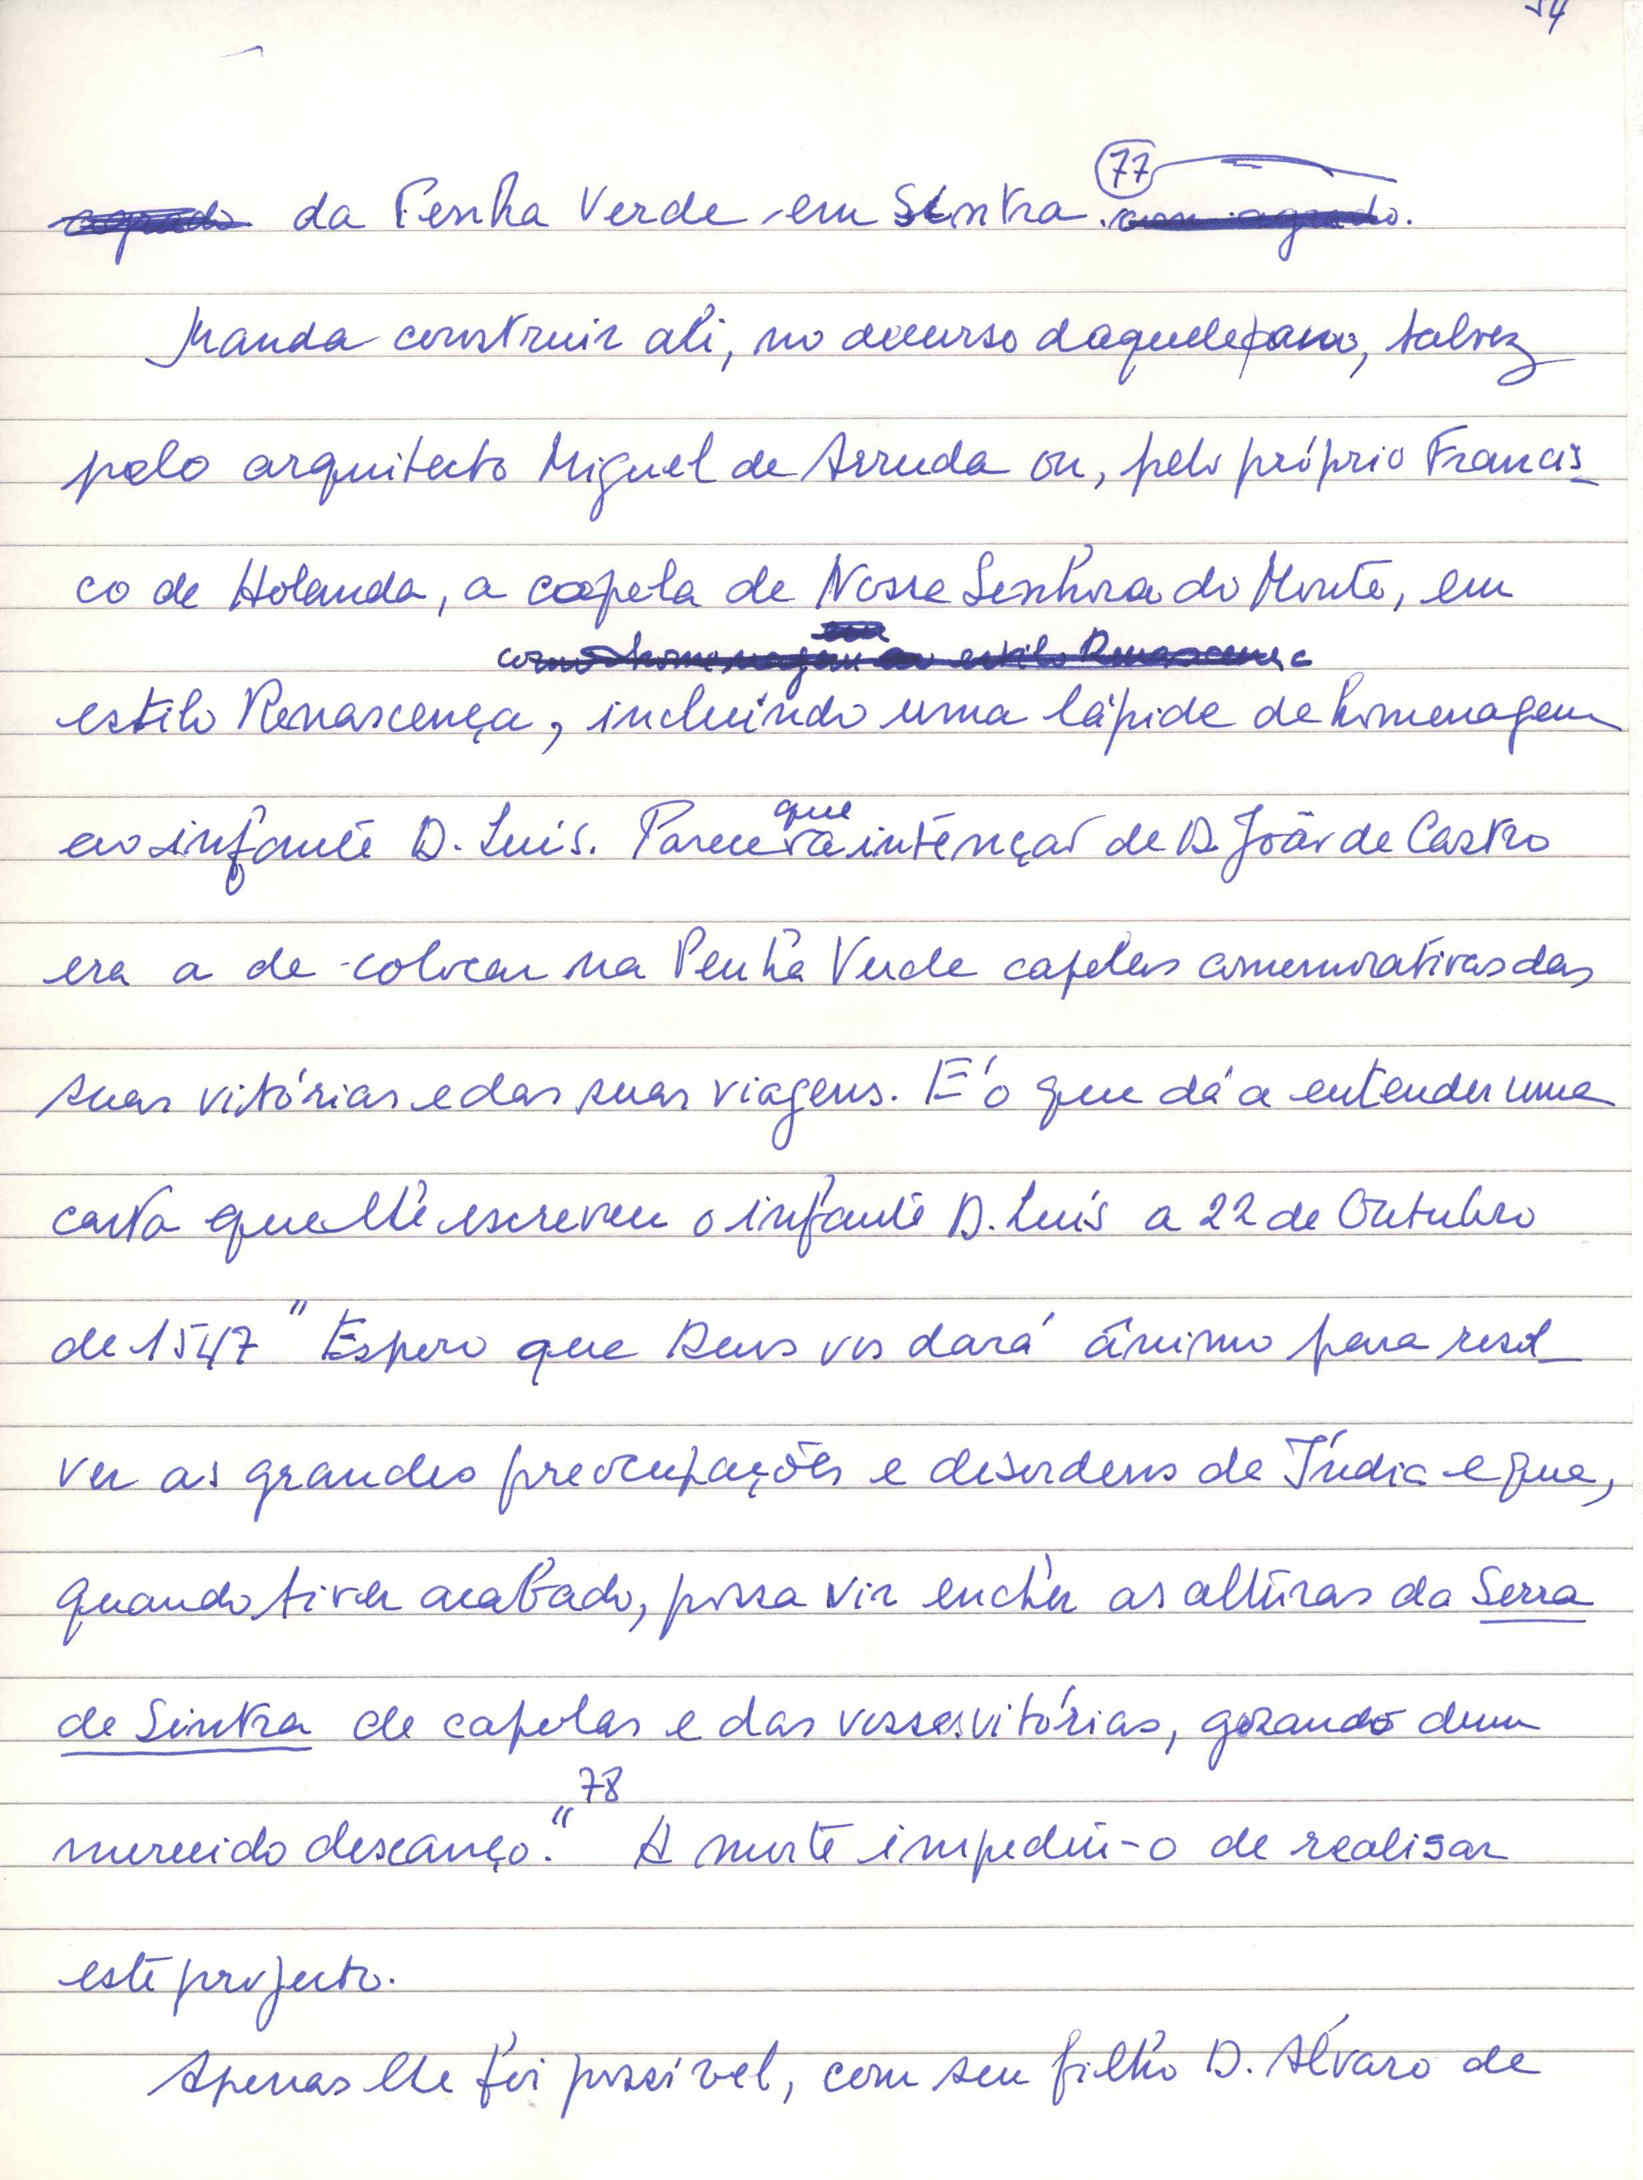 54
77
da Penha Verde em Sintra.
Manda construir ali, no decurso daquele ano, talvez
pelo arquitecto Miguel de Arruda ou, pelo próprio Francis-
co de Holanda, a capela de Nossa Senhora do Monte, em
como homenagem ao estilo Renascença
estilo Renascença, incluindo uma lápide de homenagem
que
ao infante D. Luís. Parece a intenção de D. João de Castro
era a de colocar na Penha Verde capelas comemorativas das
suas vitórias e das suas viagens. É o que dá a entender uma
carta que lhe escreveu o infante D. Luís a 22 de Outubro
de 1547 "Espero que Deus vos dará ânimo para resol-
ver as grandes preocupações e desordens da Índia e que,
quando tiver acabado, possa vir encher as alturas da Serra
de Sintra de capelas e das vossas vitórias, gozando dum
78
merecido descanço." A morte impediu-o de realisar
este projecto.
Apenas lhe foi possível, com seu filho D. Álvaro de